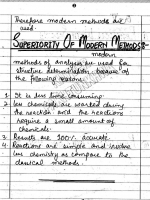 Therefore modern methods are
used.
SUPERIORITY OF MODERN METHODS:-
modern
methods of analysis are used for
structure determination because of
the following reasons.
1. It is less time consuming.
2. Less chemicals are wasted during
the reaction and the reactions
require a small amount of
chemicals.
3. Results are 100% accurate.
4. Reactions are simple and involve
less chemistry as compare to the
classical methods.